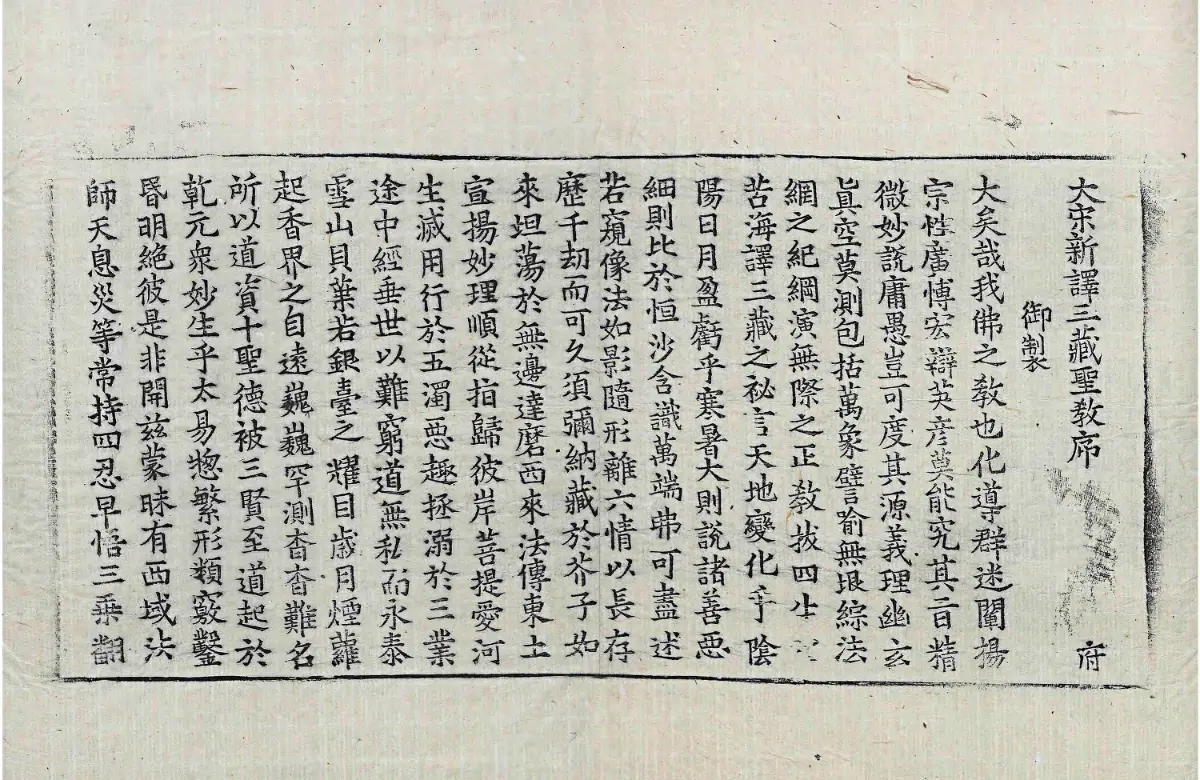 大宋新譯三藏聖教序 府
御製
大矣哉我佛之教也化導群迷闡揚
宗性廣博宏辯英彥莫能究其旨精
微妙說庸愚豈可度其源義理幽玄
眞空莫測包括萬象譬喻無垠綜法
網之紀綱演無際之正教拔四生
苦海譯三藏之祕言天地變化乎陰
陽日月盈虧乎寒暑大則說諸善惡
細則比於恒沙含識萬端弗可盡述
若窺像法如影隨形離六情以長存
歷千劫而可久須彌納藏於芥子如
來坦蕩於無邊達磨西來法傳東土
宣揚妙理順從指歸彼岸菩提愛河
生滅用行於五濁惡趣拯溺於三業
途中經垂世以難窮道無私而永泰
雪山貝葉若銀臺之耀目歲月煙蘿
起香界之自遠巍巍罕測杳杳難名
所以道資十聖德被三賢至道起於
乾元衆妙生乎太易惣繁形類竅鑿
昬明絕彼是非開玆蒙昧有西域法
師天息災等常持四忍早悟三乗翻